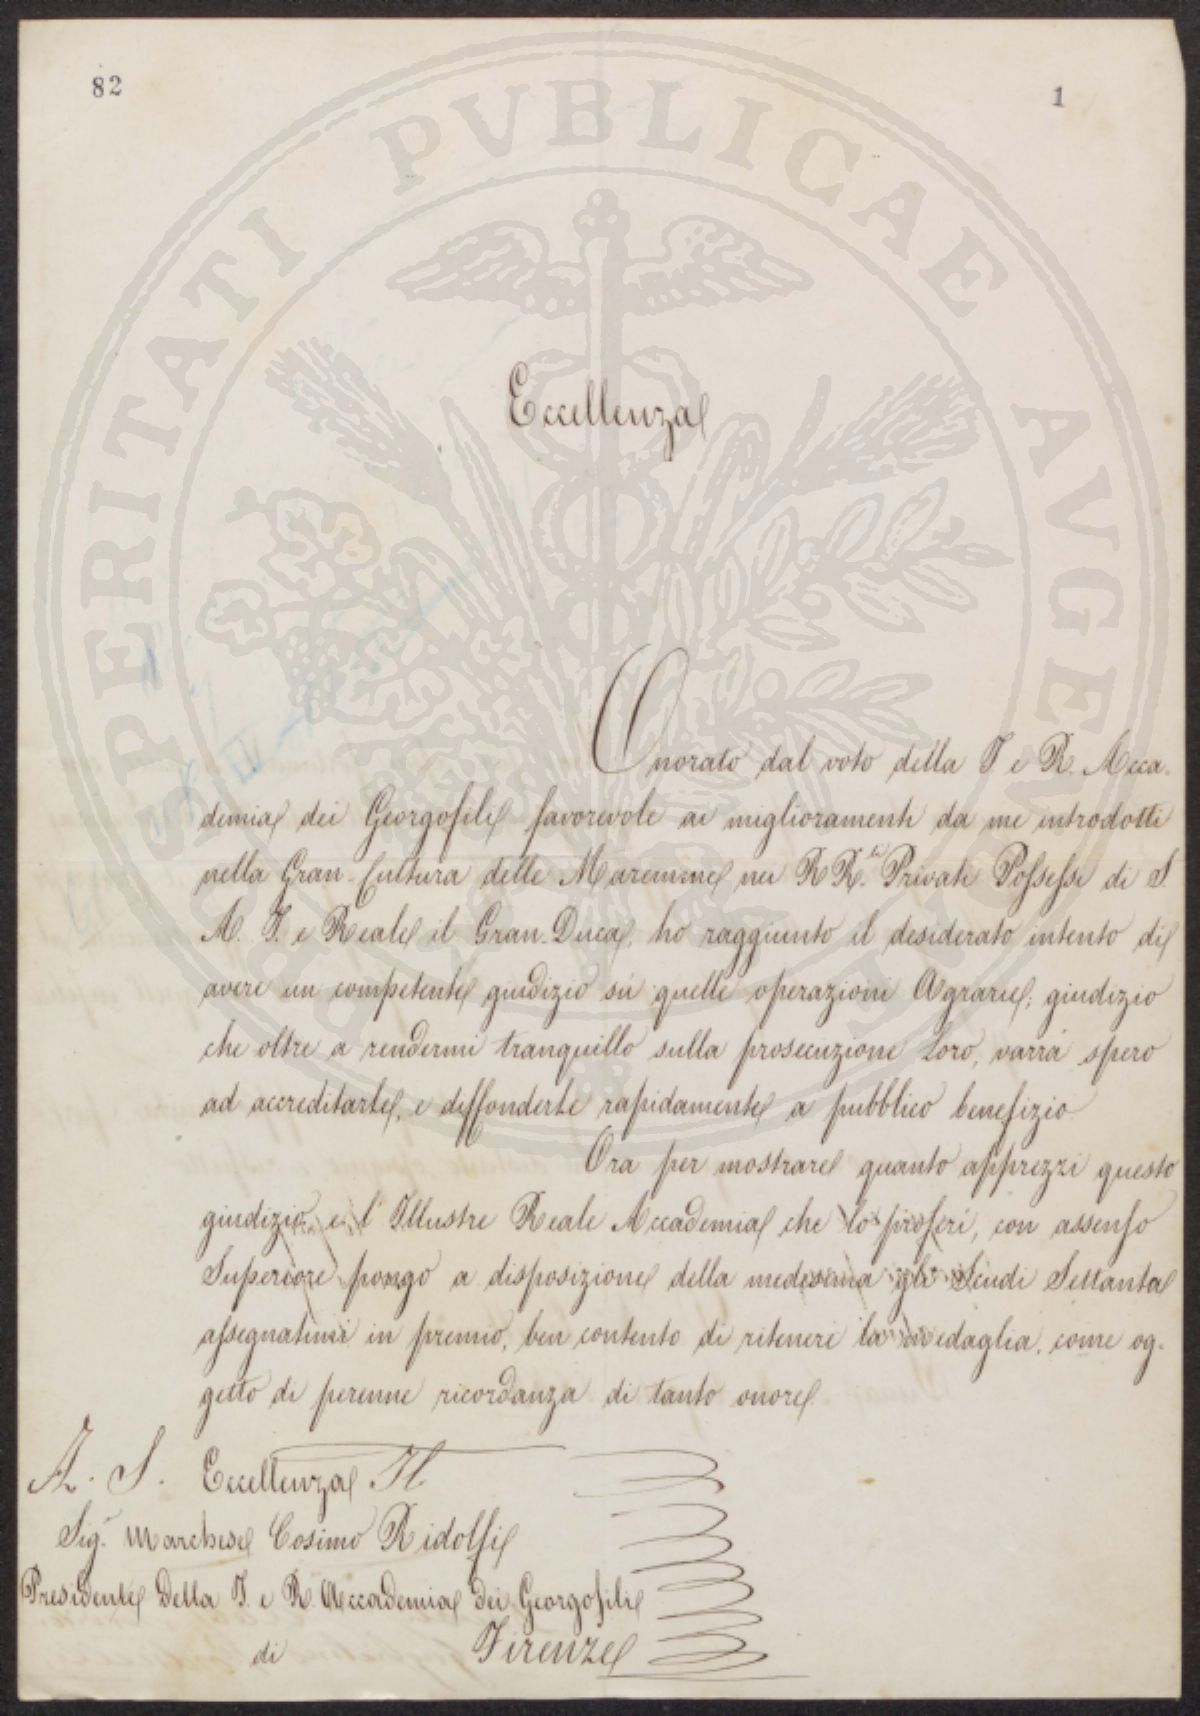 82
1
PROSPERITATI PVBLICAE AVGENDAE
Eccellenza
Onorato dal voto della I. e R. Acca-
demia dei Georgofili favorevole ai miglioramenti da me introdotti
nella Gran-Cultura delle Maremme nei RR.li Privati Possessi di S.
A. I. e Reale il Gran-Duca, ho raggiunto il desiderato intento di
avere un competente giudizio su quelle operazioni Agrarie; giudizio
che oltre a rendermi tranquillo sulla prosecuzione loro, varrà spero
ad accreditarle, e diffonderle rapidamente a pubblico benefizio.
Ora per mostrare quanto apprezzi questo
giudizio, e l'Illustre Reale Accademia che lo proferì, con assenso
Superiore pongo a disposizione della medesima gli Scudi Settanta
assegnatimi in premio, ben contento di ritenere la medaglia, come og-
getto di perenne ricordanza di tanto onore.
A. S. Eccellenza Il
Sig.r Marchese Cosimo Ridolfi
Presidente della I. e R. Accademia dei Georgofili
di Firenze